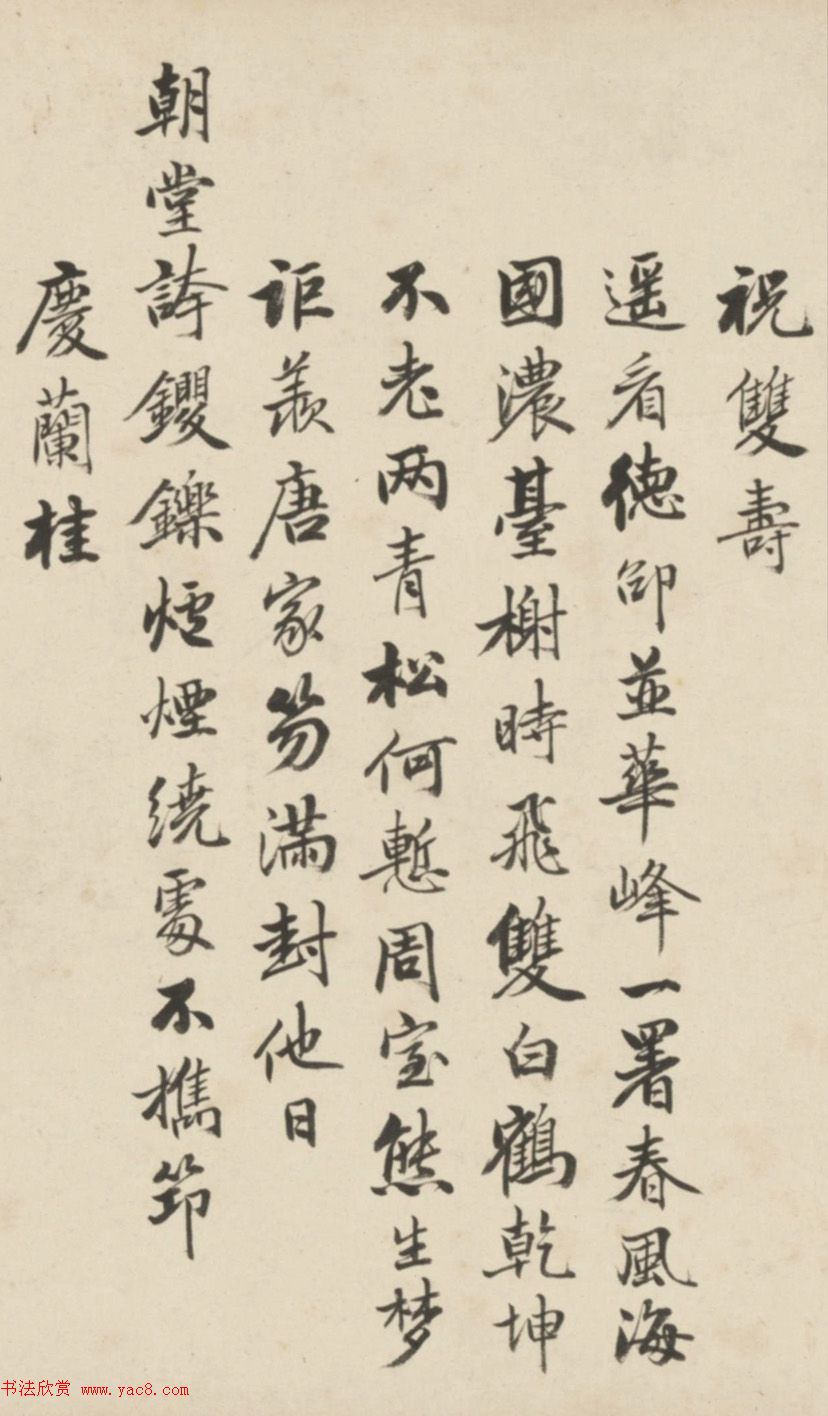 祝雙壽
遥看德卲並華峰一署春風海
國濃臺榭時飛雙白鶴乾坤
不老两青松何慙周室熊生梦
詎羨唐家笏滿封他日
朝堂誇钁鑠爐煙繞處不携笻
慶蘭桂
书法欣赏 www.yac8.com